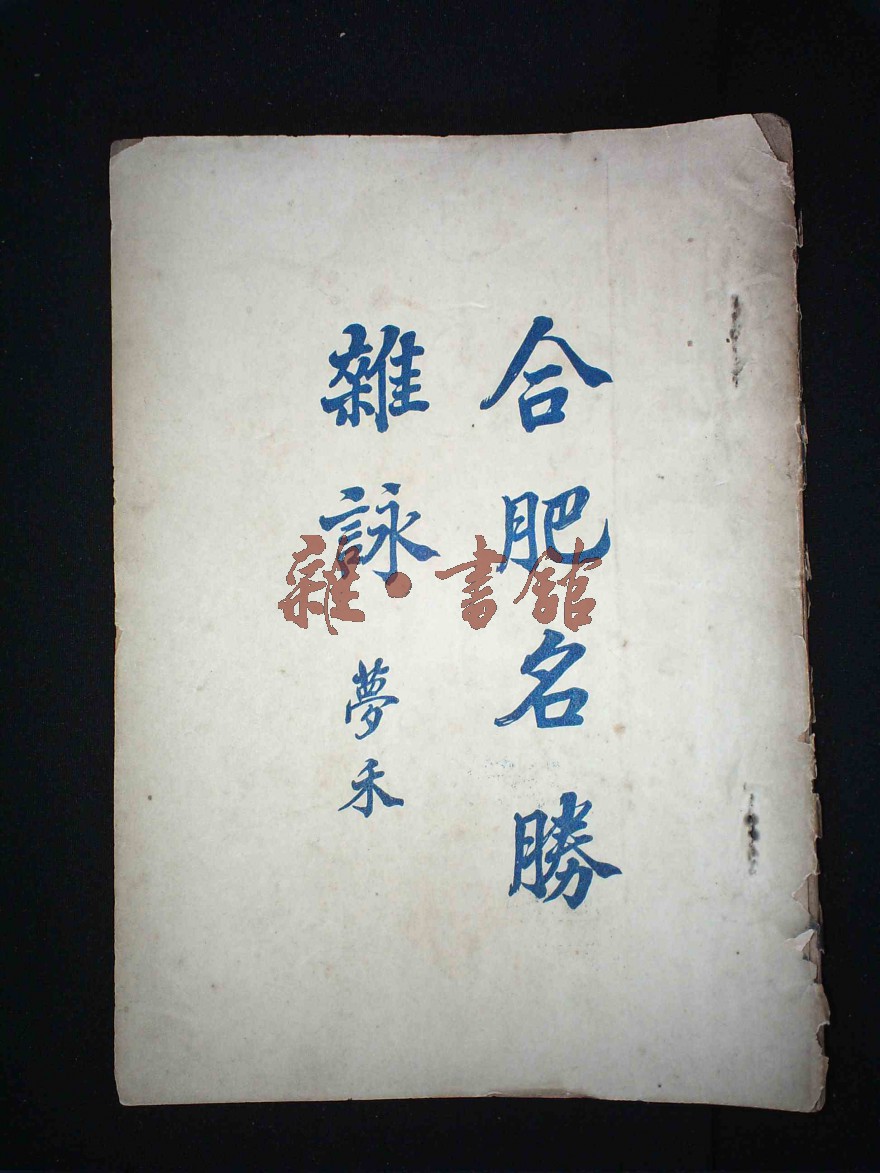 合肥名勝
雜詠 夢禾
雜·書館